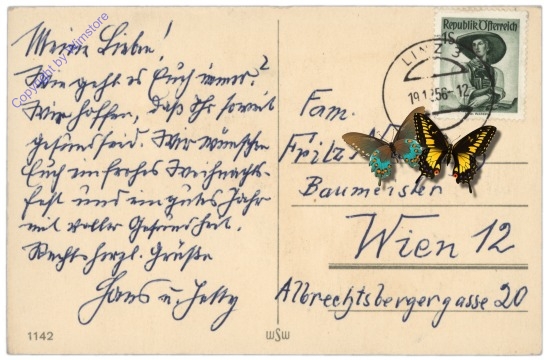 Meine Lieben!
Wie geht es Euch immer?
Wir hoffen, daß Ihr soweit
gesund seid. Wir wünschen
Euch ein frohes Weihnachts-
fest und ein gutes Jahr
mit voller Gesundheit.
Recht herzl. Grüße
Hans u. Jetty
Copyright by Filmstore
1142
Republik Österreich
1S
LINZ 3
19.12.56-12
Fam.
Fritz
Baumeister
Wien 12
Albrechtsbergergasse 20
WSW